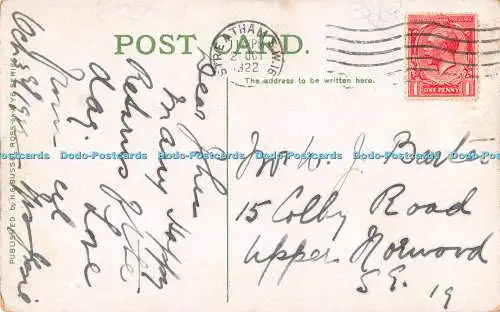 POST CARD.
STREATHAM S.W.16
PM
2 OCT
1922
The address to be written here.
ONE PENNY
Dear John
Many Happy
Returns of the
day.
Love
from
Oct 3rd
J. Barter
15 Colby Road
Upper Norwood
S.E. 19
PUBLISHED by H.G. BUSS ROSS-ON-WYE SERIES
Dodo-Postcards Dodo-Postcards Dodo-Postcards Dodo-Postcards Dodo-Postcards Dodo-Postcards Dodo-Postcards